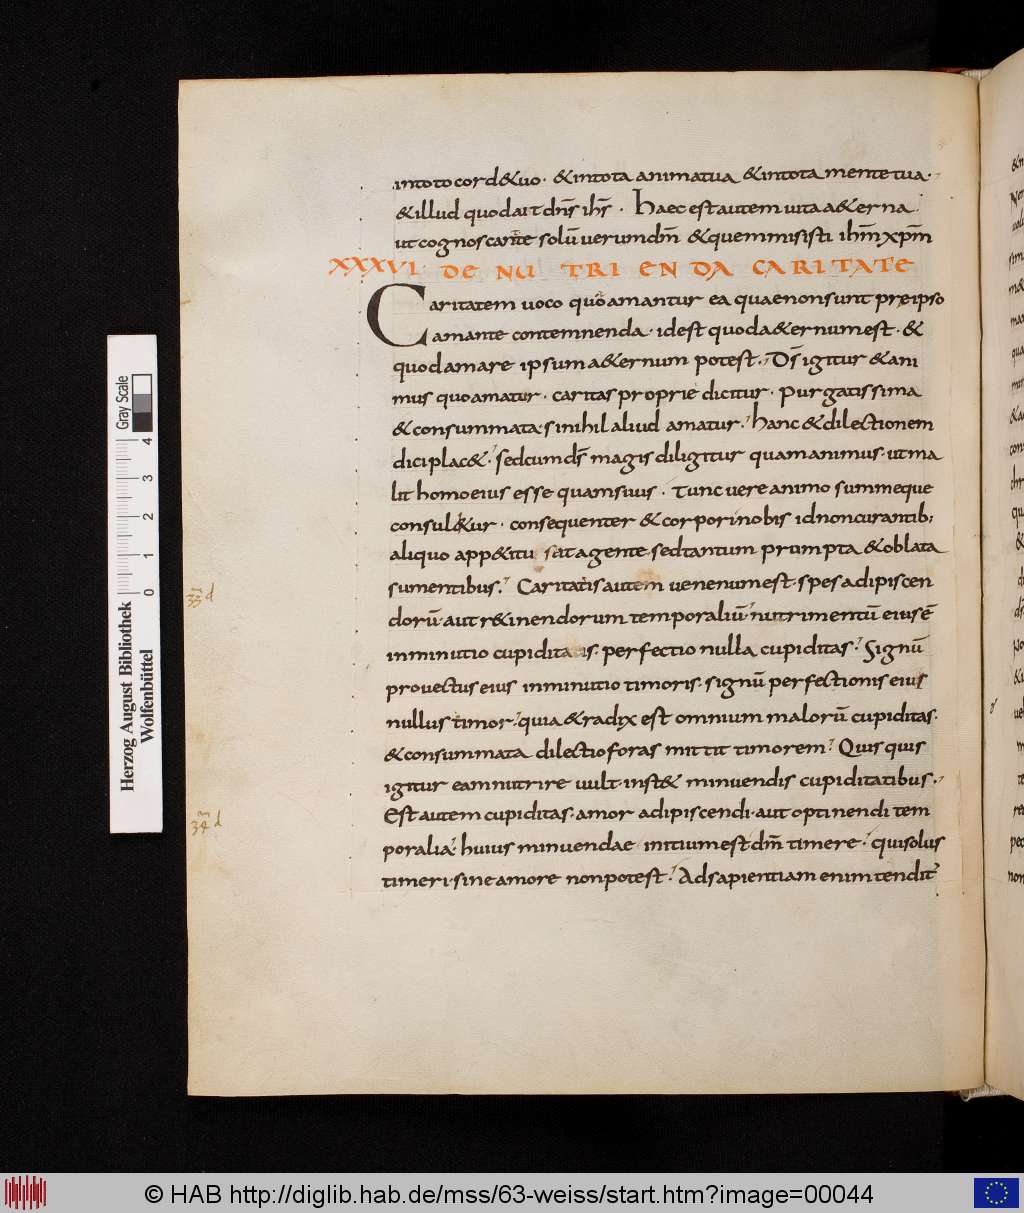 intoto cord&uo · &intota animatua &intota mentetua ·
&illud quodait dn̄s ih̄s · Haec est autem uita a&erna
ut cognoscant te solū uerum dm̄ &quem misisti ih̄m xp̄m
XXXVI DE NUTRIENDA CARITATE
Caritatem uoco quo amantur ea quae non sunt pre ipso
amante contemnenda · id est quod a&ernum est · &
quod amare ipsum a&ernum potest · D̄s igitur & ani
mus quo amatur · caritas proprie dicitur · purgatissima
& consummata · si nihil aliud amatur · hanc & dilectionem
dici plac& · sed cum d̄s magis diligitur quam animus · ut ma
lit homo eius esse quam suus · Tunc uere animo summeque
consul&ur · consequenter & corpori nobis id non curantib;
aliquo app&itu satagente sed tantum prumpta & oblata
sumentibus · Caritatis autem uenenum est · spes adipiscen
dorū · aut r&inendorum temporaliū · nutrimentū eius ē
inminutio cupiditatis · perfectio nulla cupiditas · Signū
prouectus eius inminutio timoris · signū perfectionis eius
nullus timor · quia & radix est omnium malorū cupiditas ·
& consummata dilectio foras mittit timorem · Quisquis
igitur eam nutrire uult · inst& minuendis cupiditatibus ·
Est autem cupiditas · amor adipiscendi · aut optinendi tem
poralia · huius minuendae initium est dm̄ timere · qui solus
timeri · sine amore non potest · Ad sapientiam enim tendit
Herzog August Bibliothek
Wolfenbüttel
0 1 2 3 4
Gray Scale
© HAB http://diglib.hab.de/mss/63-weiss/start.htm?image=00044